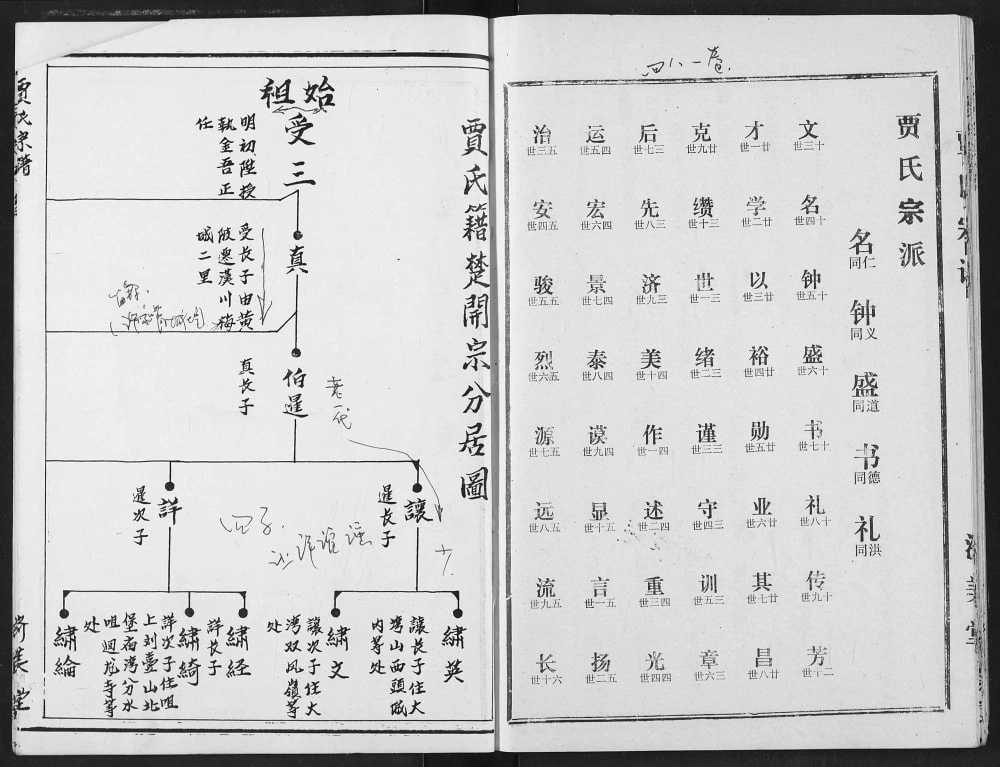 四八一卷
贾氏宗派
名仁同 钟义同 盛道同 书德同 礼洪同
文十三世 名十四世 钟十五世 盛十六世 书十七世 礼十八世 传十九世 芳二十世
才廿一世 学廿二世 以廿三世 裕廿四世 勋廿五世 业廿六世 其廿七世 昌廿八世
克廿九世 缵三十世 世三一世 绪三二世 谨三三世 守三四世 训三五世 章三六世
后三七世 先三八世 济三九世 美四十世 作四一世 述四二世 重四三世 光四四世
运四五世 宏四六世 景四七世 泰四八世 谟四九世 显五十世 言五一世 扬五二世
治五三世 安五四世 骏五五世 烈五六世 源五七世 远五八世 流五九世 长六十世
賈氏籍楚開宗分居圖
始祖
受三
明初陞授
執金吾正
任
真
受長子由黄
陂遷漢川梅
城二里
伯暹
真長子
讓
暹長子
詳
暹次子
繡英
讓長子住大
灣山西頭城
内等处
繡文
讓次子住大
湾双凤嶺等
处
繡经
詳長子
繡綺
詳次子住咀
上刘臺山北
堡庙湾分水
咀迴龙寺等
处
繡綸
賈氏宗譜